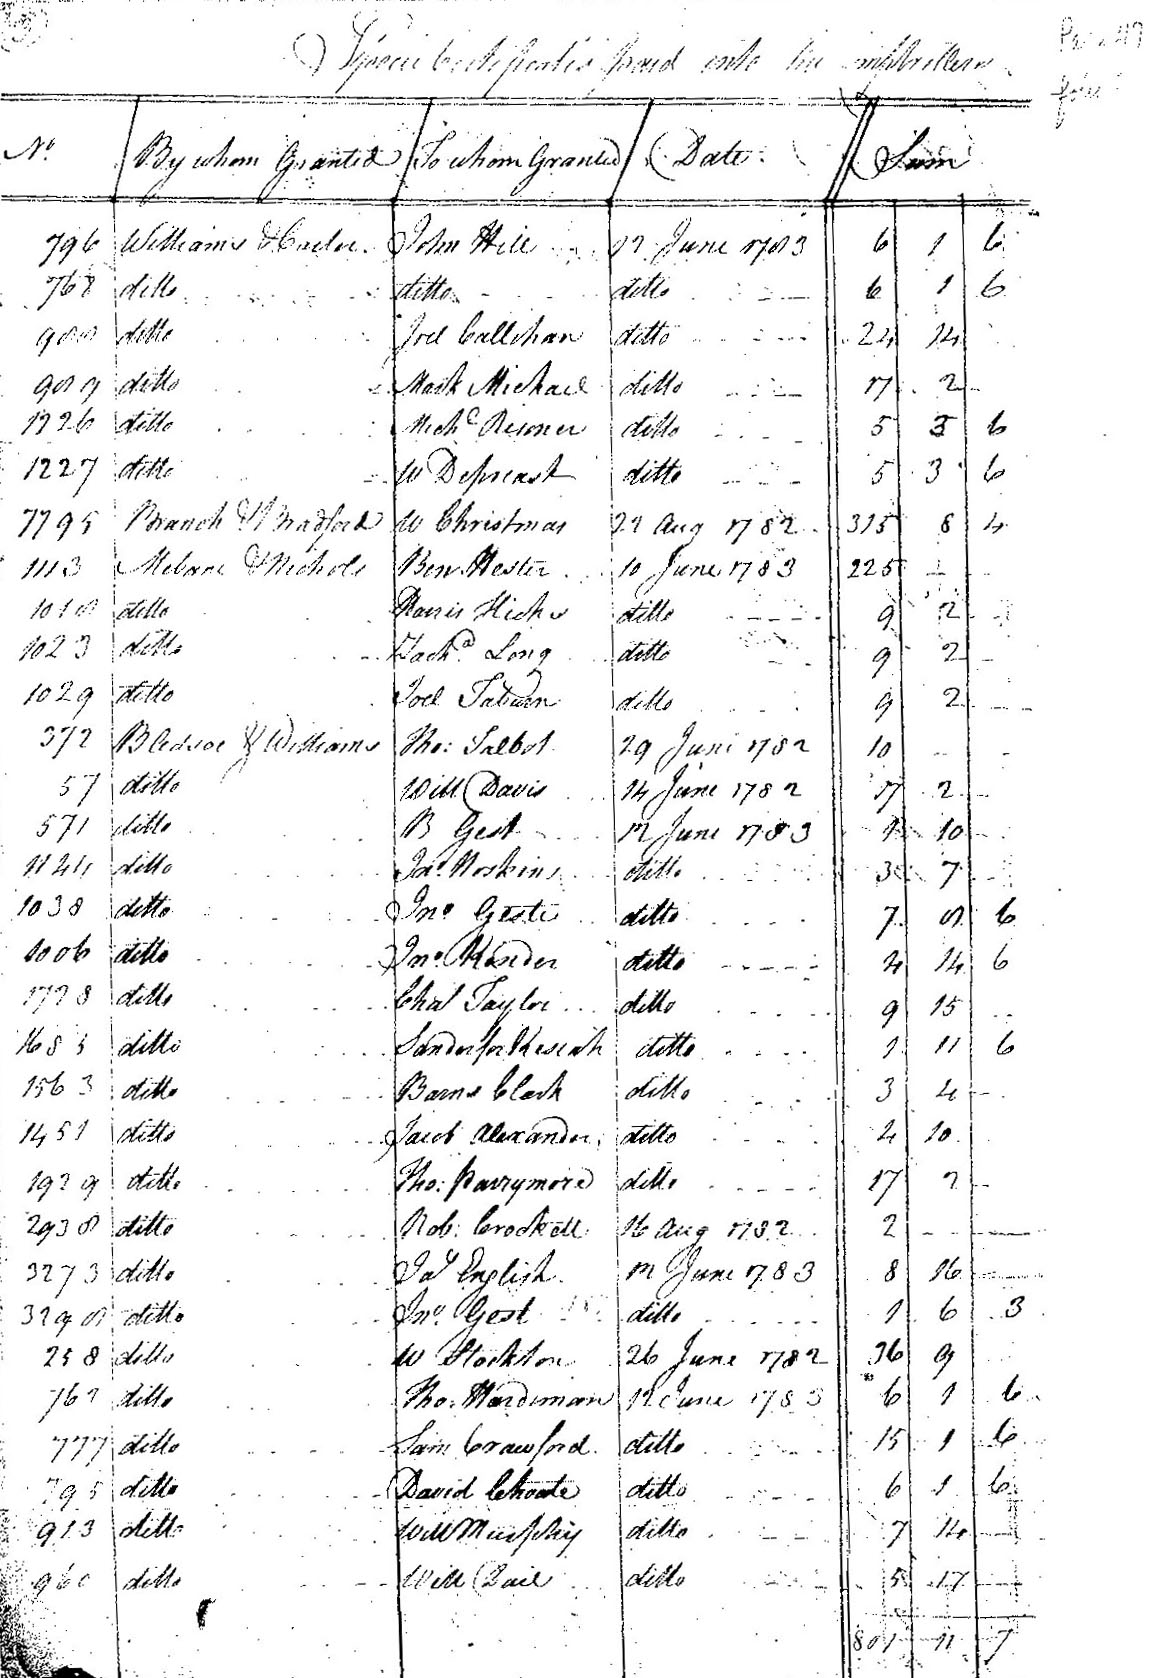 Specie Certificates paid into the Comptrollers
No. By whom Granted To whom Granted Date Sum
796 Williams & Carter John Hill 12 June 1783 6 1 6
768 ditto ditto ditto 6 1 6
988 ditto Joel Callihan ditto 24 14
989 ditto Mark Michael ditto 17 2
1226 ditto Michl ditto 5 3 6
1227 ditto W Depreast ditto 5 3 6
7795 Branch & Bradford W Christmas 22 Aug 1782 315 8 4
1113 Mebane & Nichols Ben Hester 10 June 1783 225
1018 ditto Harris Hicks ditto 9 2
1023 ditto Zacha Long ditto 9 2
1029 ditto Joel Taburn ditto 9 2
372 Bledsoe & Williams Tho: Talbot 29 June 1782 10
57 ditto Will Davis 14 June 1782 17 2
571 ditto B Gest 12 June 1783 1 10
1124 ditto Hoskins ditto 3 7
1038 ditto Jno Geste ditto 7 8 6
1006 ditto Jno ditto 4 14 6
1728 ditto Chal Taylor ditto 9 15
1685 ditto Sanderfor Kesiah ditto 1 11 6
1563 ditto Barns Clark ditto 3 4
1451 ditto Jacob Alexander ditto 4 10
1929 ditto Tho: Parrymore ditto 17 2
2938 ditto Rob: Crockett 16 Aug 1782 2
3273 ditto Jas English 12 June 1783 8 16
3298 ditto Jno Gest ditto 1 6 3
258 ditto W Stockton 26 June 1782 36 9
762 ditto Tho: Hardiman 12 June 1783 6 1 6
777 ditto Sam Crawford ditto 15 1 6
795 ditto David Choate ditto 6 1 6
913 ditto Will Murphy ditto 7 14
960 ditto Will Bail ditto 5 17
801 11 7